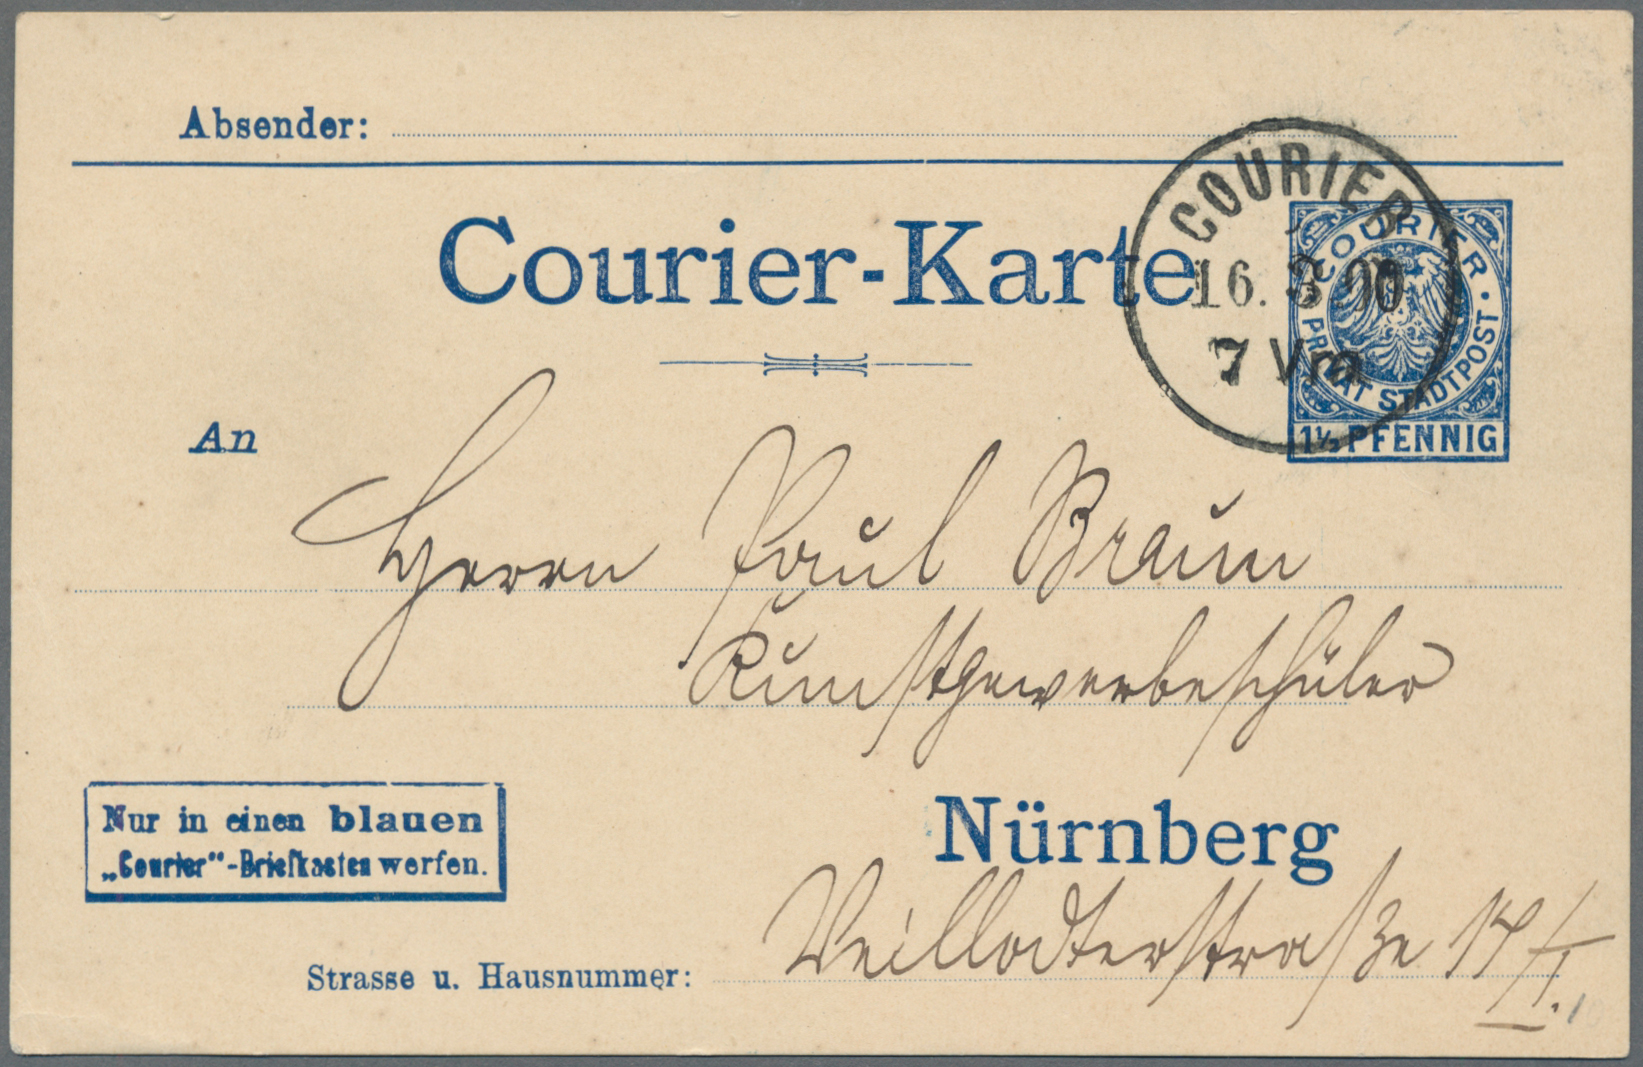 Absender:
Courier-Karte
COURIER
16. 3 00
7 Vm
COURIER · PRIVAT STADTPOST ·
1½ PFENNIG
An
Herrn Paul Braun
Kunstgewerbeschüler
Nur in einen blauen
„Courier“-Briefkasten werfen.
Nürnberg
Strasse u. Hausnummer:
Veillodterstraße